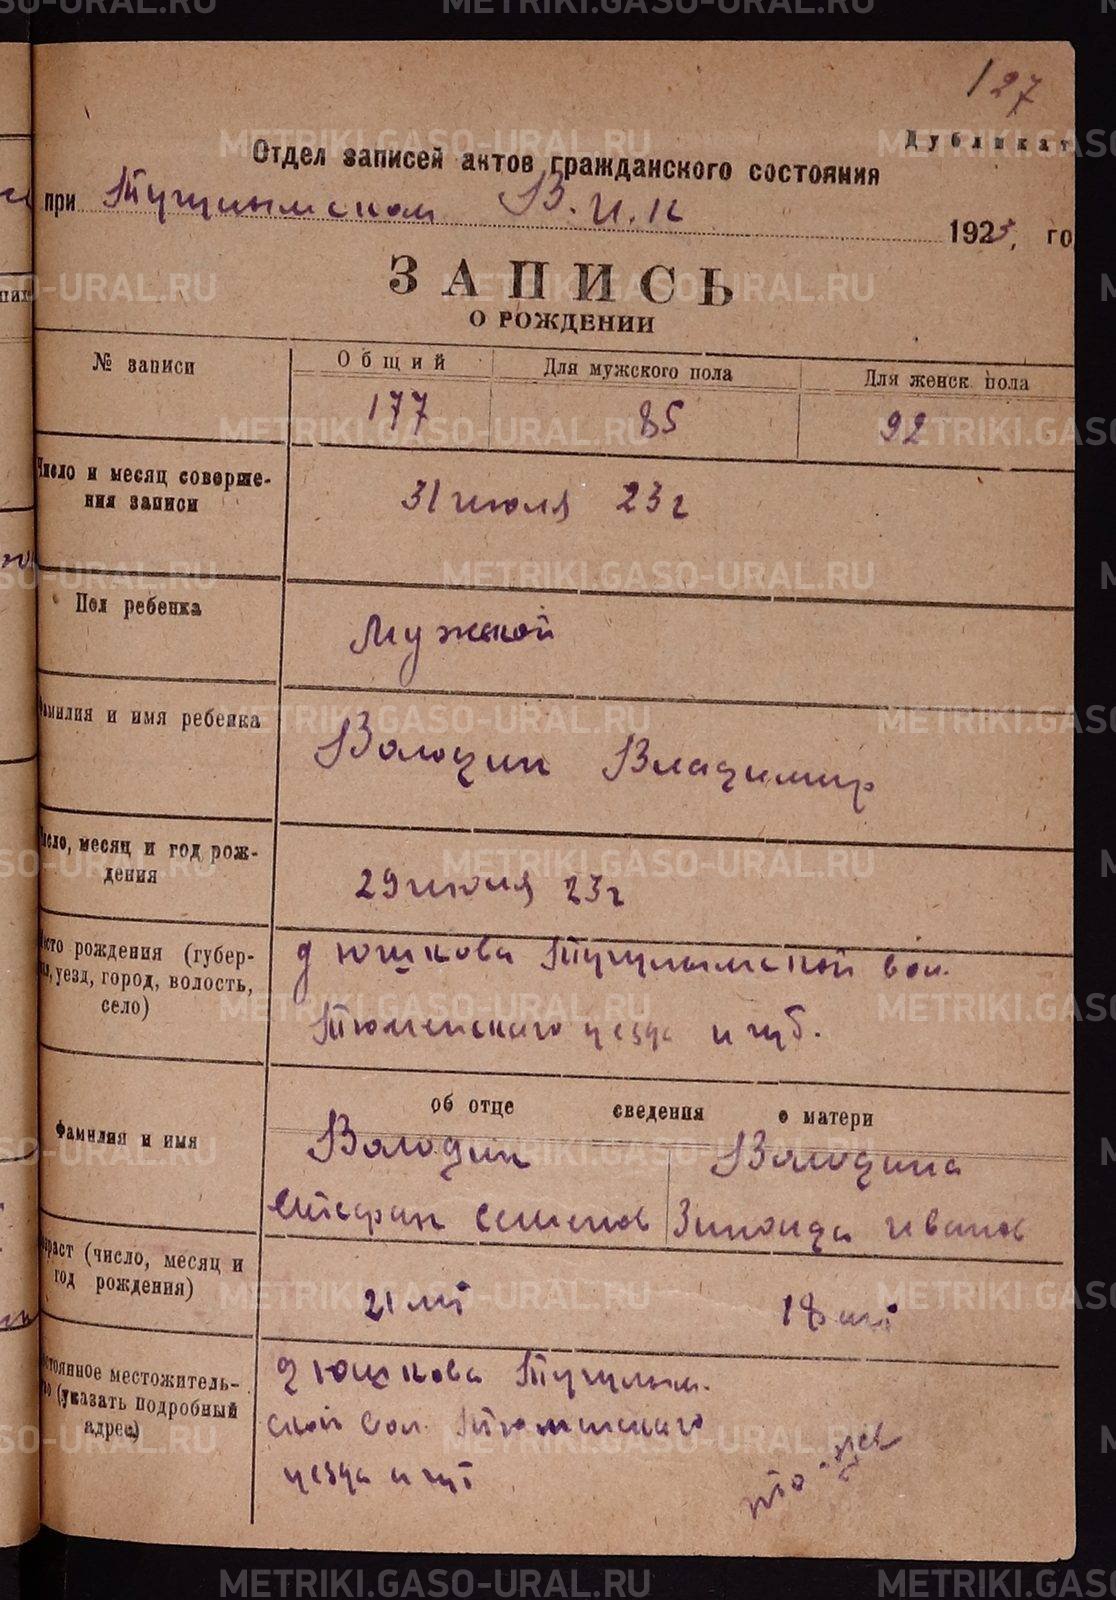 127
Дубликат
Отдел записей актов гражданского состояния
при Тугулымском В.И.К 1923, го
ЗАПИСЬ
О РОЖДЕНИИ
№ записи Общий Для мужского пола Для женск пола
177 85 92
Число и месяц соверше-
ния записи
31 июля 23 г
Пол ребенка
Мужской
Фамилия и имя ребенка
Володин Владимир
Число, месяц и год рож-
дения
29 июля 23 г
Место рождения (губер-
ния, уезд, город, волость,
село)
д Юшкова Тугулымской вол.
Тюменского уезда и губ.
об отце сведения о матери
Фамилия и имя
Володин Володина
Степан Семенов Зиноида Иванов
Возраст (число, месяц и
год рождения)
21 лет 18 лет
Постоянное местожитель-
ство (указать подробный
адрес)
д Юшкова Тугулым-
ской вол. Тюменского
уезда и губ
то же
METRIKI.GASO-URAL.RU